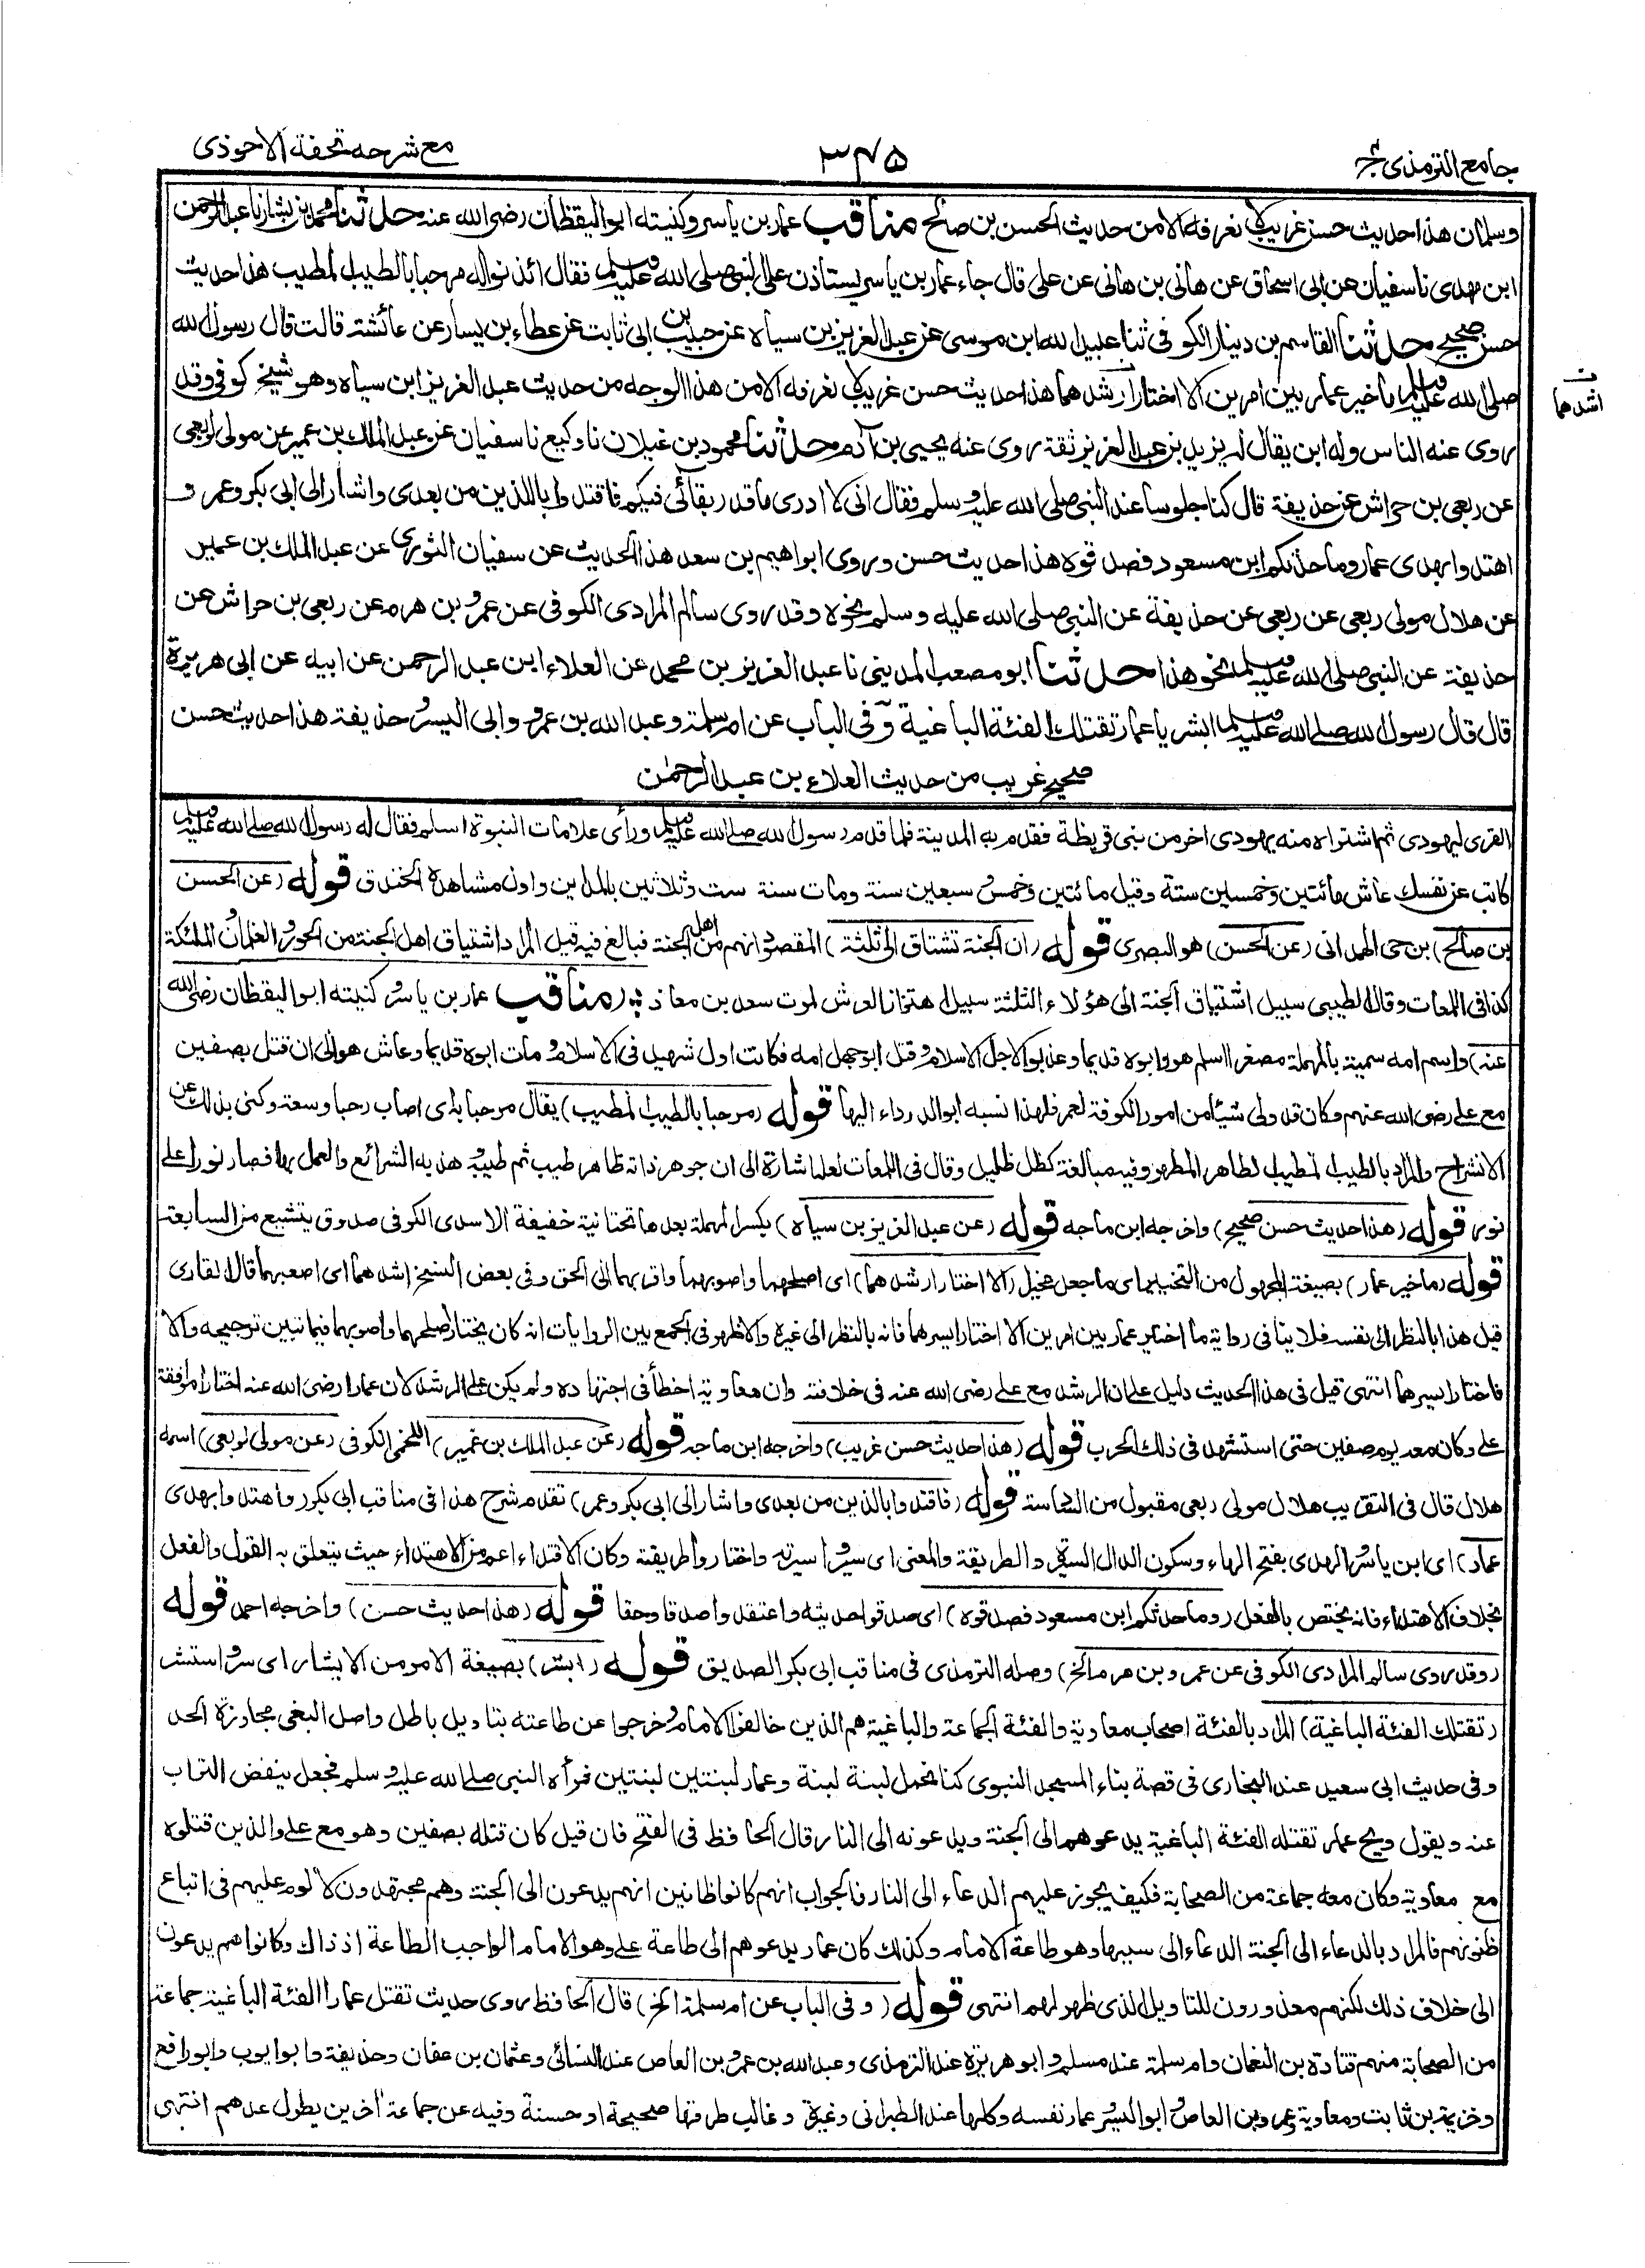 جامع الترمذی ج۴
۳۴۵
مع شرحه تحفة الاحوذی
وسلمان هذا حديث حسن غريب لا نعرفه الا من حديث الحسن بن صالح مناقب عمار بن ياسر وكنيته ابو اليقظان رضى الله عنه حدثنا محمد بن بشار نا عبد الرحمن
ابن مهدى نا سفيان عن ابى اسحاق عن هانى بن هانى عن على قال جاء عمار بن ياسر يستاذن على النبى صلى الله عليه وسلم فقال ائذنوا له مرحبا بالطيب المطيب هذا حديث
حسن صحيح حدثنا القاسم بن دينار الكوفى ثنا عبيد الله ابن موسى عن عبد العزيز بن سياه عن حبيب بن ابى ثابت عن عطاء بن يسار عن عائشة قالت قال رسول الله
صلى الله عليه وسلم ما خير عمار بين امرين الا اختار ارشدهما هذا حديث حسن غريب لا نعرفه الا من هذا الوجه من حديث عبد العزيز ابن سياه وهو شيخ كوفى وقد
ت
اشدهما
روى عنه الناس وله ابن يقال له يزيد بن عبد العزيز ثقة روى عنه يحيى بن آدم حدثنا محمود بن غيلان نا وكيع نا سفيان عن عبد الملك بن عمير عن مولى لربعى
عن ربعى بن حراش عن حذيفة قال كنا جلوسا عند النبى صلى الله عليه وسلم فقال انى لا ادرى ما قدر بقائى فيكم فاقتدوا باللذين من بعدى واشار الى ابى بكر وعمر و
اهتدوا بهدى عمار وما حدثكم ابن مسعود فصدقوه هذا حديث حسن وروى ابراهيم بن سعد هذا الحديث عن سفيان الثورى عن عبد الملك بن عمير
عن هلال مولى ربعى عن ربعى عن حذيفة عن النبى صلى الله عليه وسلم نحوه وقد روى سالم المرادى الكوفى عن عمرو بن هرم عن ربعى بن حراش عن
حذيفة عن النبى صلى الله عليه وسلم نحو هذا حدثنا ابو مصعب المدينى نا عبد العزيز بن محمد عن العلاء ابن عبد الرحمن عن ابيه عن ابى هريرة
قال قال رسول الله صلى الله عليه وسلم ابشر يا عمار تقتلك الفئة الباغية وفى الباب عن ام سلمة وعبد الله بن عمرو وابى اليسر وحذيفة هذا حديث حسن
صحيح غريب من حديث العلاء بن عبد الرحمٰن
القرى ليهودى ثم اشتراه منه يهودى اخر من بنى قريظة فقدم به المدينة فلما قدم رسول الله صلى الله عليه وسلم ورأى علامات النبوة اسلم فقال له رسول الله صلى الله عليه وسلم
كاتب عن نفسك عاش مائتين وخمسين سنة وقيل مائتين وخمس سبعين سنة ومات سنة ست وثلاثين بالمداين واول مشاهده الخندق قوله (عن الحسن
بن صالح) بن حى الهمدانى (عن الحسن) هو البصرى قوله (ان الجنة تشتاق الى ثلثة) المقصود انهم من اهل الجنة فبالغ فيه قيل المراد اشتياق اهل الجنة من الحور والغلمان والملئكة
كذا فى اللمعات وقال الطيبى سبيل اشتياق الجنة الى هؤلاء الثلثة سبيل اهتزاز العرش لموت سعد بن معاذ (مناقب عمار بن ياسر وكنيته ابو اليقظان رضى الله
عنه) واسم امه سمية بالمهملة مصغرا اسلم هو وابوه قديما وعذبوا لاجل الاسلام وقتل ابو جهل امه فكانت اول شهيد فى الاسلام ومات ابوه قديما وعاش هو الى ان قتل بصفين
مع على رضى الله عنهم وكان قد ولى شيئا من امور الكوفة لعمر فلهذا نسبه ابو الدرداء اليها قوله (مرحبا بالطيب المطيب) يقال مرحبا به اى اصاب رحبا وسعة وكنى بذلك عن
الانشراح والمراد بالطيب المطيب الطاهر المطهر وفيه مبالغة كظل ظليل وقال فى اللمعات لعله اشارة الى ان جوهر ذاته طاهر طيب ثم طيبه وهذبه الشرائع والعمل بها فصار نورا على
نور قوله (هذا حديث حسن صحيح) واخرجه ابن ماجه قوله (عن عبد العزيز بن سياه) بكسر المهملة بعدها تحتانية خفيفة الاسدى الكوفى صدوق يتشيع من السابعة
قوله (ما خير عمار) بصيغة المجهول من التخيير اى ما جعل مخيرا (الا اختار ارشدهما) اى اصلحهما واصوبهما واقربهما الى الحق وفى بعض النسخ اشدهما اى اصعبهما قال القارى
قيل هذا بالنظر الى نفسه فلا ينافى رواية ما اختير عمار بين امرين الا اختار ايسرهما فانه بالنظر الى غيره والاظهر فى الجمع بين الروايات انه كان يختار اصلحهما واصوبهما فيما تبين ترجيحه والا
فاختار ايسرهما انتهى قيل فى هذا الحديث دليل على ان الرشد مع على رضى الله عنه فى خلافته وان معاوية اخطأ فى اجتهاده ولم يكن على الرشد لان عمارا رضى الله عنه اختار موافقة
على وكان معه يوم صفين حتى استشهد فى ذلك الحرب قوله (هذا حديث حسن غريب) واخرجه ابن ماجه قوله (عن عبد الملك بن عمير) اللخمى الكوفى (عن مولى لربعى) اسمه
هلال قال فى التقريب هلال مولى ربعى مقبول من السادسة قوله (فاقتدوا باللذين من بعدى واشار الى ابى بكر وعمر) تقدم شرح هذا فى مناقب ابى بكر (واهتدوا بهدى
عمار) اى ابن ياسر والهدى بفتح الهاء وسكون الدال السيرة والطريقة والمعنى اى سيروا سيرته واختاروا طريقته وكان الاقتداء اعم من الاهتداء حيث يتعلق به القول والفعل
بخلاف الاهتداء فانه يختص بالفعل (وما حدثكم ابن مسعود فصدقوه) اى صدقوا حديثه واعتقدوه صادقا وحقا قوله (هذا حديث حسن) واخرجه احمد قوله
(وقد روى سالم المرادى الكوفى عن عمرو بن هرم الخ) وصله الترمذى فى مناقب ابى بكر الصديق قوله (ابشر) بصيغة الامر من الابشار اى سر واستبشر
(تقتلك الفئة الباغية) المراد بالفئة اصحاب معاوية والفئة الجماعة والباغية هم الذين خالفوا الامام وخرجوا عن طاعته بتاويل باطل واصل البغى مجاوزة الحد
وفى حديث ابى سعيد عند البخارى فى قصة بناء المسجد النبوى كنا نحمل لبنة لبنة وعمار لبنتين لبنتين فرأه النبى صلى الله عليه وسلم فجعل ينفض التراب
عنه ويقول ويح عمار تقتله الفئة الباغية يدعوهم الى الجنة ويدعونه الى النار قال الحافظ فى الفتح فان قيل كان قتله بصفين وهو مع على والذين قتلوه
مع معاوية وكان معه جماعة من الصحابة فكيف يجوز عليهم الدعاء الى النار فالجواب انهم كانوا ظانين انهم يدعون الى الجنة وهم مجتهدون لا لوم عليهم فى اتباع
ظنونهم فالمراد بالدعاء الى الجنة الدعاء الى سببها وهو طاعة الامام وكذلك كان عمار يدعوهم الى طاعة على وهو الامام الواجب الطاعة اذ ذاك وكانوا هم يدعون
الى خلاف ذلك لكنهم معذورون للتاويل الذى ظهر لهم انتهى قوله (وفى الباب عن ام سلمة الخ) قال الحافظ روى حديث تقتل عمارا الفئة الباغية جماعة
من الصحابة منهم قتادة بن النعمان وام سلمة عند مسلم وابو هريرة عند الترمذى وعبد الله بن عمرو بن العاص عند النسائى وعثمان بن عفان وحذيفة وابو ايوب وابو رافع
وخزيمة بن ثابت ومعاوية وعمرو بن العاص وابو اليسر وعمار نفسه وكلها عند الطبرانى وغيره وغالب طرقها صحيحة او حسنة وفيه عن جماعة اخرين يطول عدهم انتهى